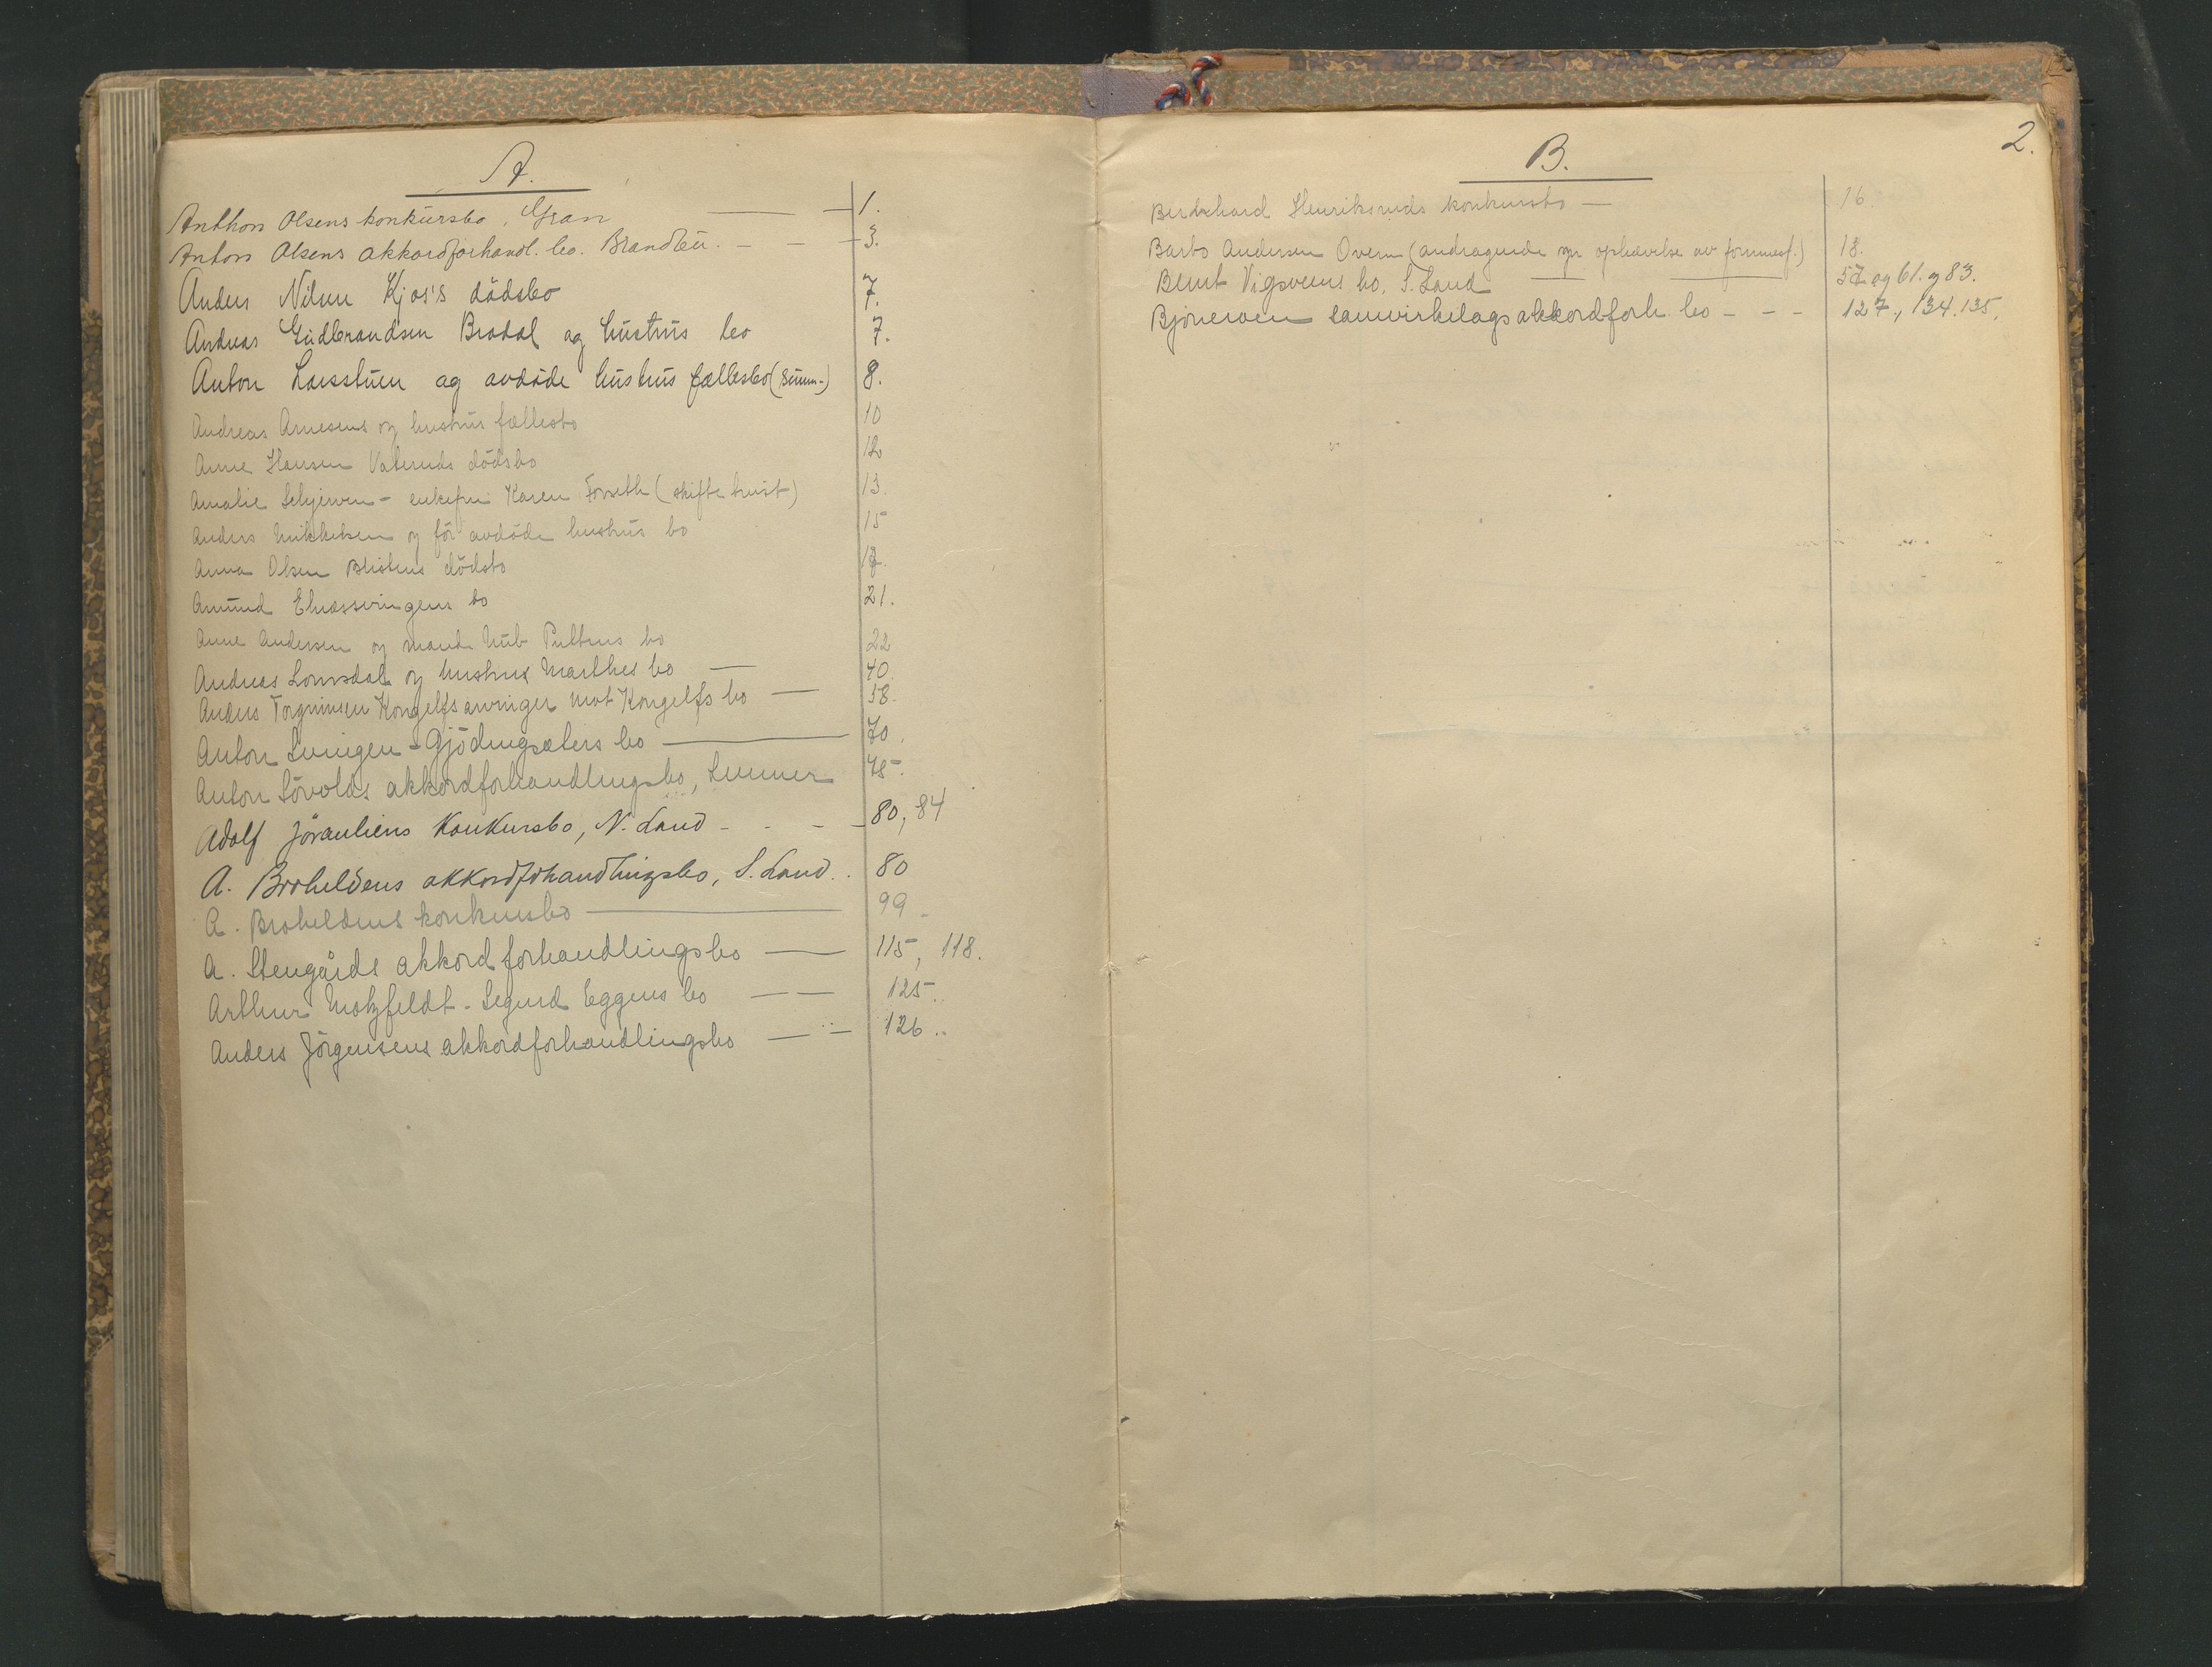 A.
Anthon Olsens konkursbo, Gran — — 1.
Anton Olsens akkordforhandl. bo. Brandbu. - - - 3.
Anders Nilsen Kjos's dödsbo 7.
Andreas Gudbrandsen Bradal og hustrus bo 7.
Anton Larsstuen og avdöde hustrus fællesbo (summ-) 8.
Andreas Arnesens og hustrus fællesbo 10
Anne Hansen Valeruds dödsbo 12
Amalie - enkefru Karen Forseth (skifte tvist) 13.
Anders Mikkelsen og för avdöde hustrus bo 15
Anna Olsen dödsbo 17.
Amund Elnæssvingens bo 21.
Anne Andersen og mands bo 22
Andreas Lomsdal og hustrus Marthes bo — 40.
Anders Torgrimsen Kongelfs mot Kongelfs bo — 58.
Anton Svingen - bo — 70.
Anton Lövolds akkordforhandlingsbo, Lunner 78.
Adolf Jöranliens Konkursbo, N. Land - - - - 80, 84
A. Broheldens akkordforhandlingsbo, S. Land. . 80
A. Broheldens konkursbo — 99
A. Stengårds akkordforhandlingsbo — 115, 118.
Arthur Motzfeldt - Sigurd Eggens bo — — 125.
Anders Jörgensens akkordforhandlingsbo — — 126.
2.
B.
Berdhard Henriksruds konkursbo — 16.
Barbo Andersen (andragende om ophævelse av formuesf.) 18.
Bernt Vigsveens bo, S. Land — — 57 og 61. og 83.
Bjoneroen samvirkelags akkordforh. bo - - - 127, 134. 135.